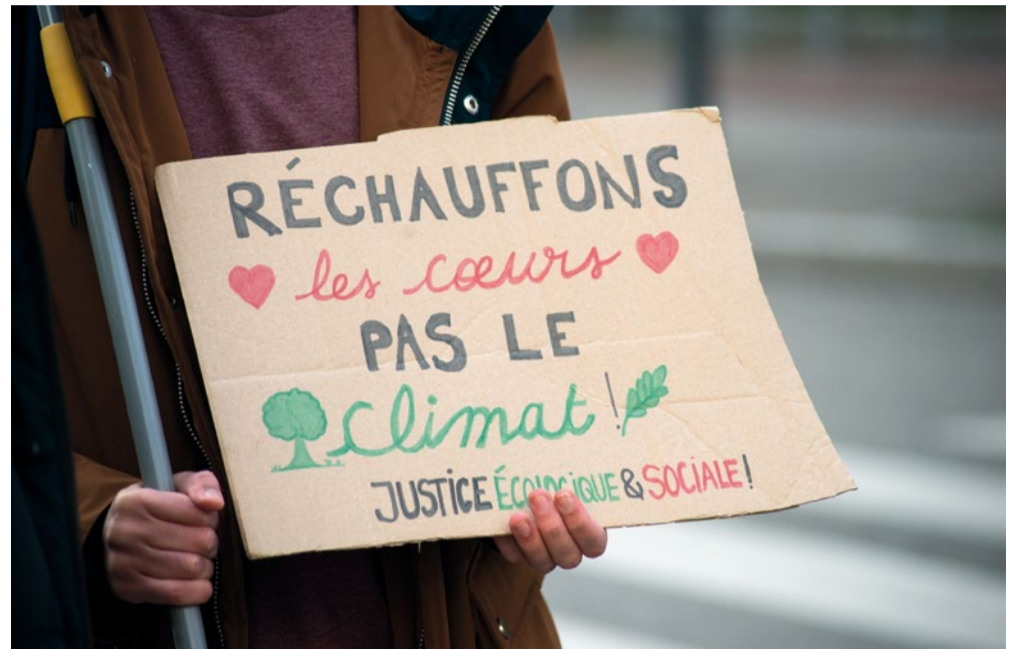 RÉCHAUFFONS
les cœurs
PAS LE
climat !
JUSTICE ÉCOLOGIQUE & SOCIALE !